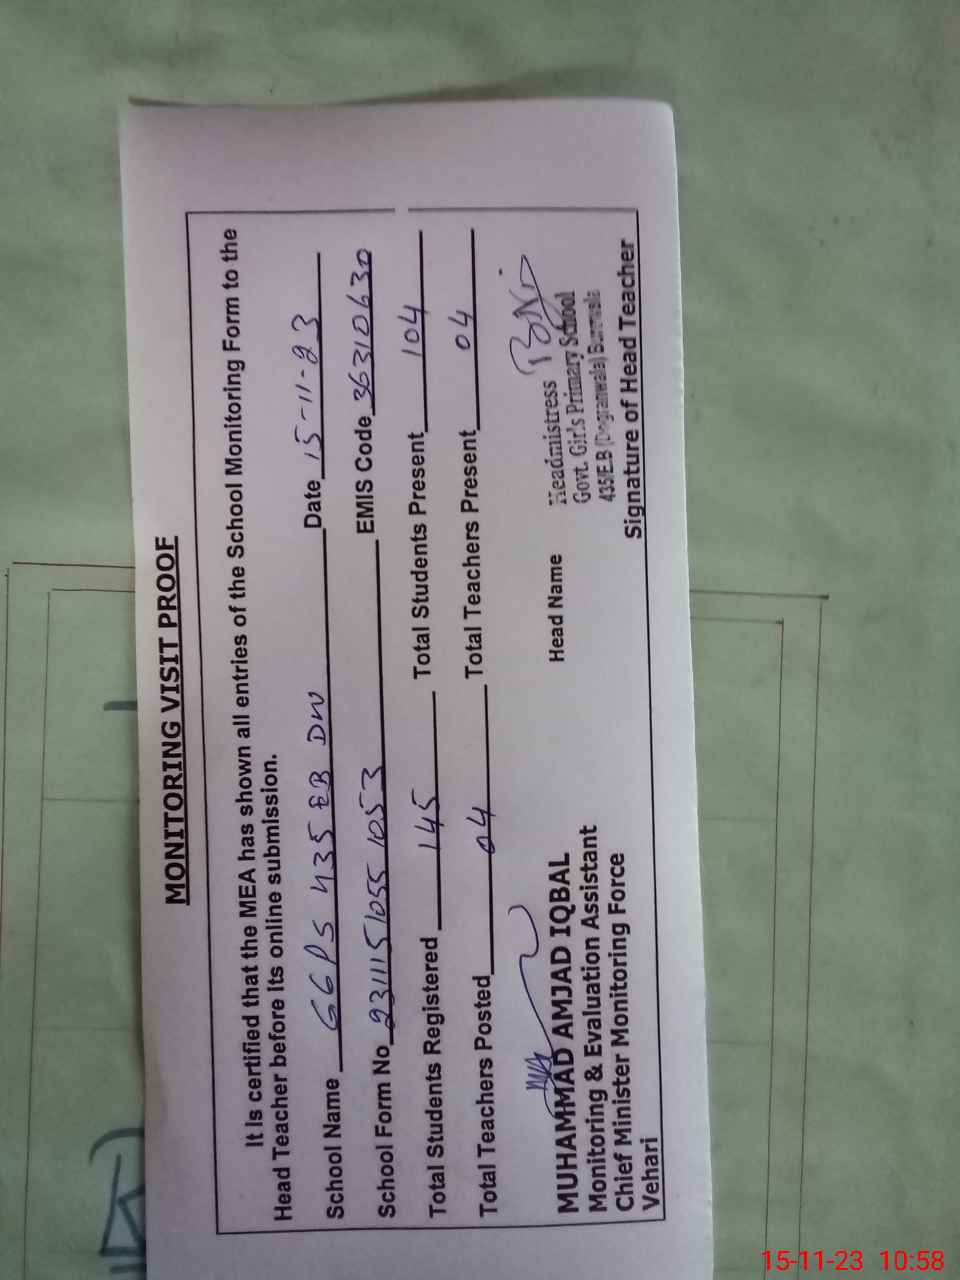 MONITORING VISIT PROOF
It Is certified that the MEA has shown all entries of the School Monitoring Form to the
Head Teacher before Its online submission.
School Name GGPS 435 EB DW Date 15-11-23
School Form No 231115 1055 1053 EMIS Code 36310630
Total Students Registered 145 Total Students Present 104
Total Teachers Posted 04 Total Teachers Present 04
MUHAMMAD AMJAD IQBAL
Monitoring & Evaluation Assistant
Chief Minister Monitoring Force
Vehari
Head Name
Headmistress
Govt. Girls Primary School
435/E.B Burewala
Signature of Head Teacher
15-11-23 10:58